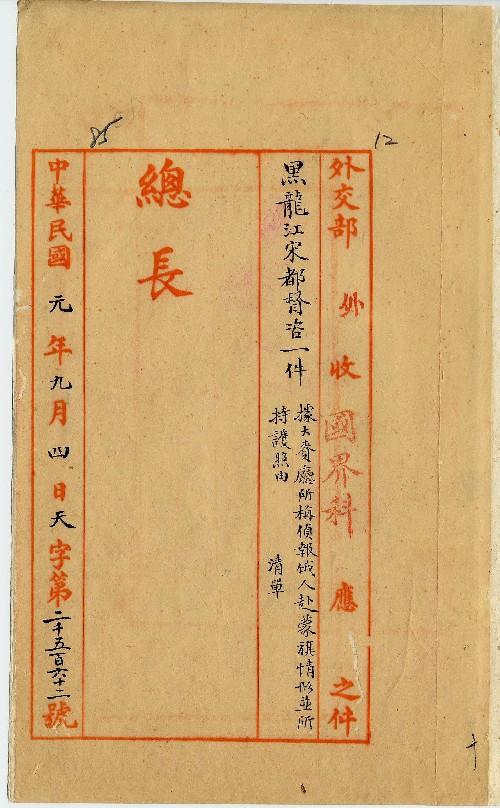 12
85
外交部 外 收 國界科 應 之件
黑龍江宋都督咨一件
據大賚廳所稱偵報俄人赴蒙旗情形並所
持護照由 清單
總長
中華民國元年九月四日天字第二千五百六十二號
十